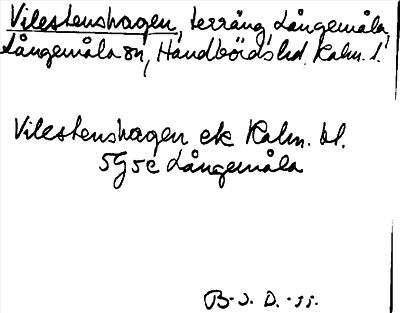 Vilestenshagen, terräng, Långemåla,
Långemåla sn, Handbörds hd. Kalm. l.
Vilestenshagen ek Kalm. bl.
5G5c Långemåla
B-J. D. -55.